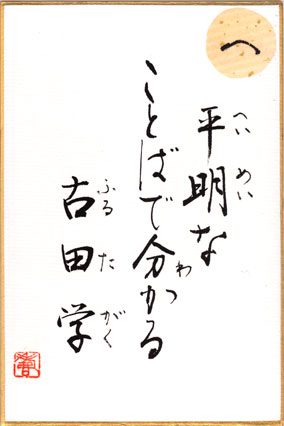 へ
平明な
へいめい
ことばで分かる
わ
古田学
ふるたがく